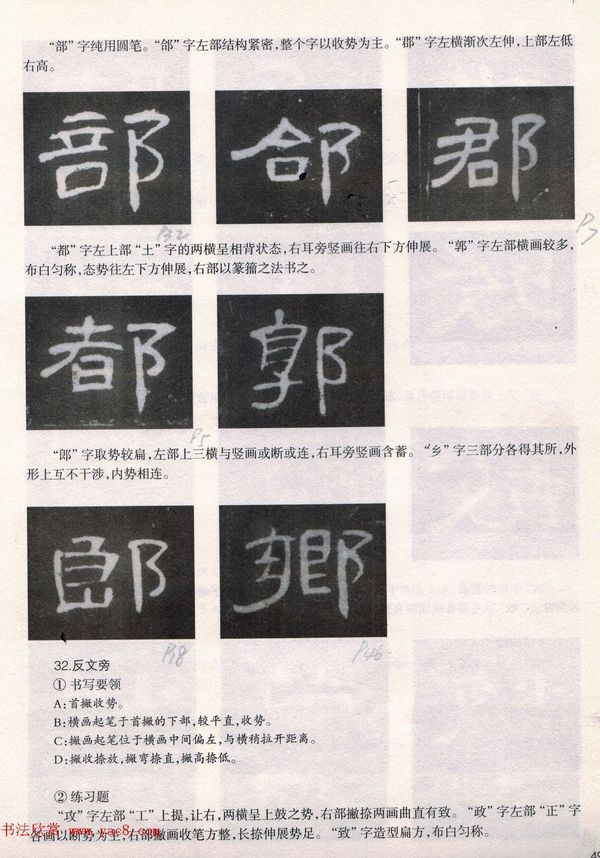 “部”字纯用圆笔。“郃”字左部结构紧密,整个字以收势为主。“郡”字左横渐次左伸,上部左低
右高。
部 郃 郡
P32
P7
“都”字左上部“土”字的两横呈相背状态,右耳旁竖画往右下方伸展。“郭”字左部横画较多,
布白匀称,态势往左下方伸展,右部以篆籀之法书之。
都 郭
P5
“郎”字取势较扁,左部上三横与竖画或断或连,右耳旁竖画含蓄。“乡”字三部分各得其所,外
形上互不干涉,内势相连。
郎 鄉
P18 P46
32.反文旁
① 书写要领
A:首撇收势。
B:横画起笔于首撇的下部,较平直,收势。
C:撇画起笔位于横画中间偏左,与横稍拉开距离。
D:撇收捺放,撇弯捺直,撇高捺低。
② 练习题
“攻”字左部“工”上提,让右,两横呈上鼓之势,右部撇捺两画曲直有致。“政”字左部“正”字
各画以断势为主,右部撇画收笔方整,长捺伸展势足。“致”字造型扁方,布白匀称。
书法欣赏 www.yac8.com